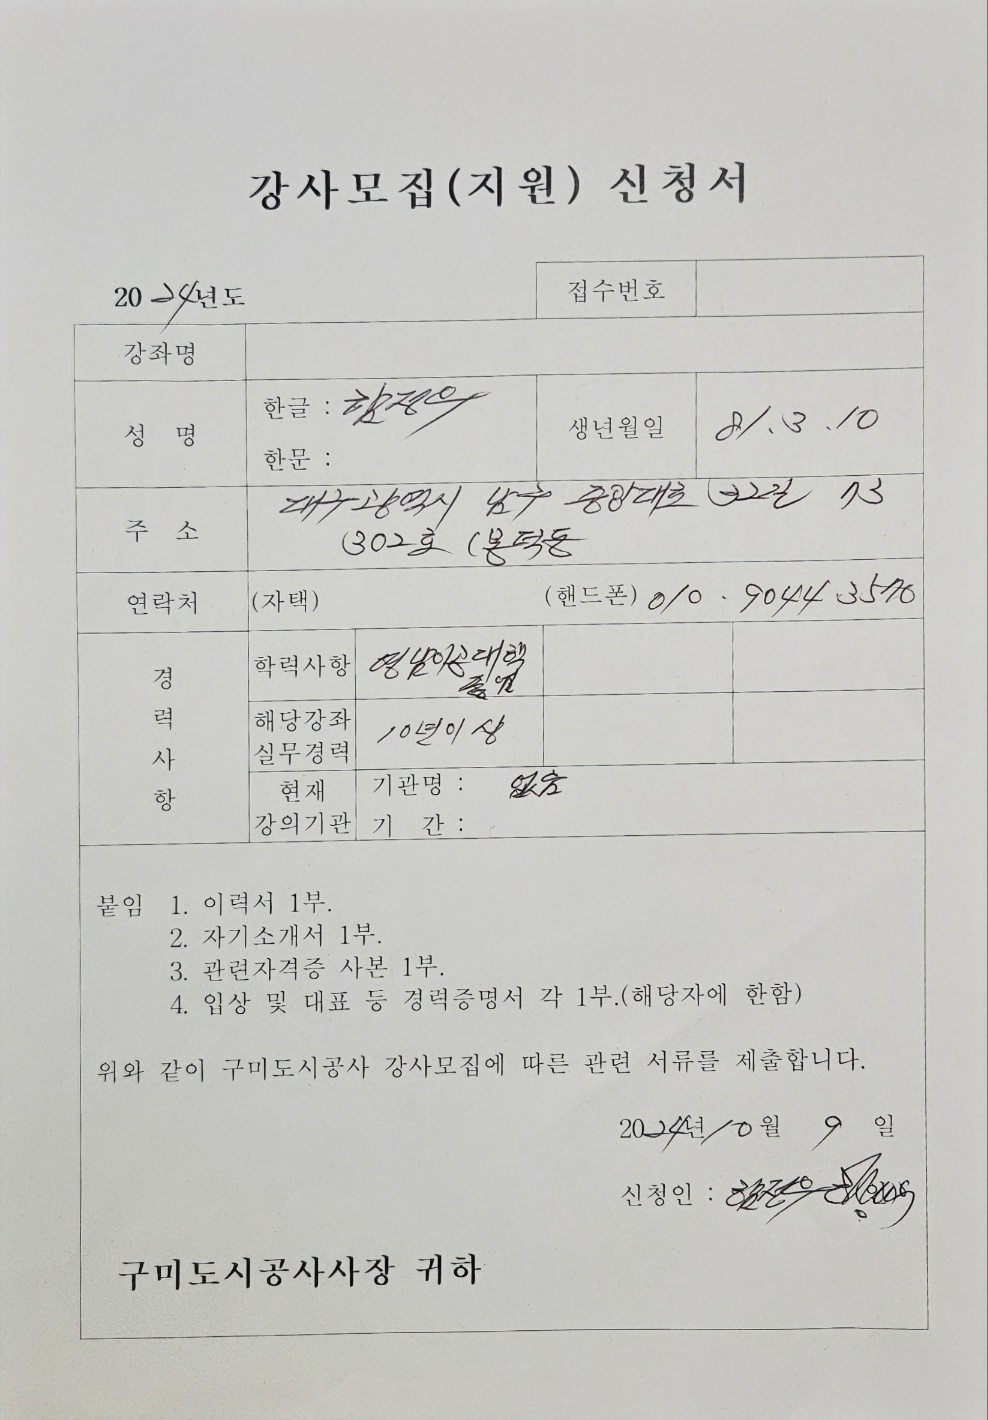 강사모집(지원) 신청서
접수번호
2024년도
강좌명
성 명
한글 : 함정우
생년월일
81.3.10
한문 :
주 소
대구광역시 남구 중앙대로 22길 73
302호 (봉덕동
연락처
(자택)
(핸드폰) 010.9044.3570
경력사항
학력사항
영남이공대학
졸업
해당강좌
실무경력
10년이상
현재
강의기관
기관명 : 없음
기 간 :
붙임 1. 이력서 1부.
2. 자기소개서 1부.
3. 관련자격증 사본 1부.
4. 입상 및 대표 등 경력증명서 각 1부.(해당자에 한함)
위와 같이 구미도시공사 강사모집에 따른 관련 서류를 제출합니다.
2024년 10월 9 일
신청인 : 함정우
구미도시공사사장 귀하